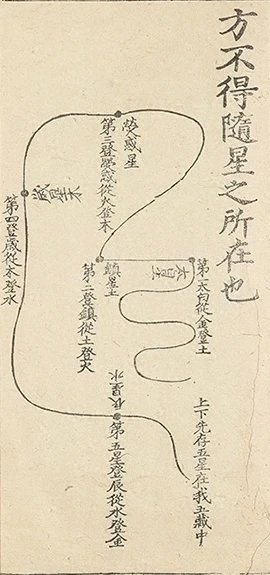 方不得隨星之所在也
上下先存五星在我五藏中
第一太白從金登土
熒惑星
第三登熒惑從火登木
鎮星土
第二登鎮從土登火
辰星水
第五星登辰從水登金
歲星木
第四登歲從木登水